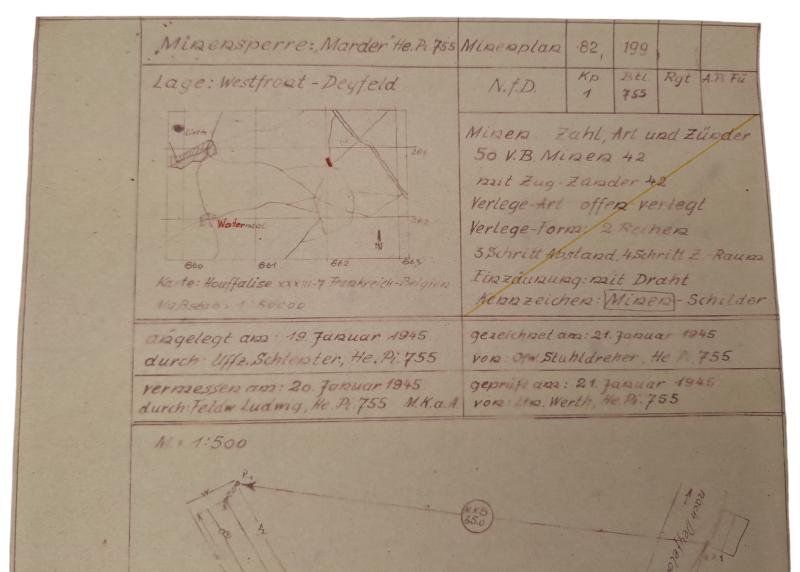 Minensperre: „Marder" He. Pi. 755
Minenplan 82, 199
Lage: Westfront - Deyfeld
N.f.D. Kp 1 Btl. 755 Rgt A.Pi.Fü
Minen Zahl, Art und Zünder
50 V.B. Minen 42
mit Zug-Zünder 42
Verlege-Art offen verlegt
Verlege-Form: 2 Reihen
3 Schritt Abstand, 4 Schritt Z-Raum
Einzäunung: mit Draht
Kennzeichen: Minen-Schilder
N
660 661 662 663
Karte: Houffalise XXXIII-7 Frankreich-Belgien
Maßstab = 1:50000
angelegt am: 19. Januar 1945
durch: Uffz. Schlenter, He. Pi. 755
gezeichnet am: 21. Januar 1945
von: Ofw. Stuhldreher, He Pi. 755
vermessen am: 20. Januar 1945
durch: Feldw Ludwig, He. Pi. 755 M.K.a.A
geprüft am: 21. Januar 1945
von: Ltn. Werth, He. Pi. 755
M = 1:500
nach Deyfeld